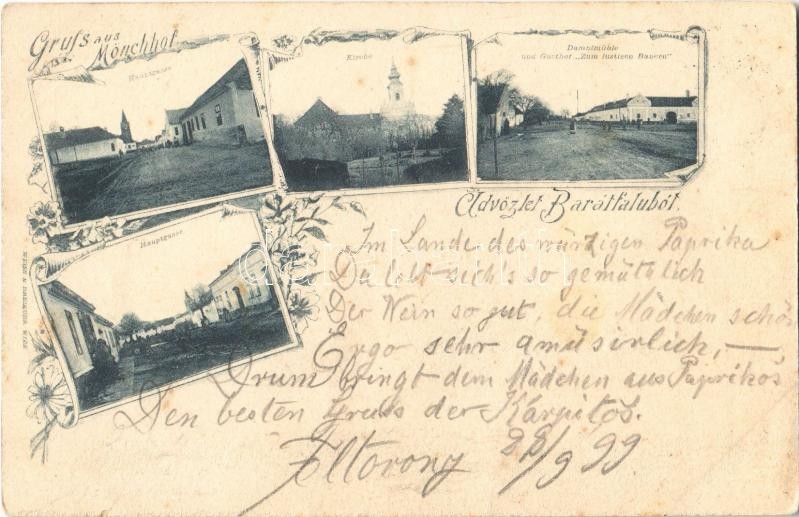 Gruss aus
Mönchhof.
Hauptgasse
Kirche
Dampfmühle
und Gasthof „Zum lustigen Bauern"
Üdvözlet Barátfaluból.
Hauptgasse
Im Lande des würzigen Paprika
Da lebt sich's so gemüthlich
Der Wein so gut, die Mädchen schön
Ergo sehr amüsirlich, —
Drum bringt dem Mädchen aus Paprikos
Den besten Gruss der Karpitos.
28/9 99